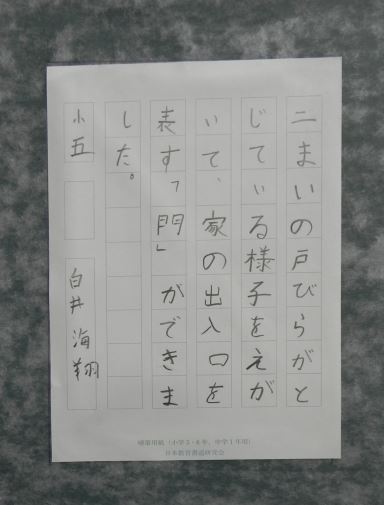 二まいの戸びらがと
じている様子をえが
いて、家の出入口を
表す「門」ができま
した。
小五
白井海翔
硬筆用紙（小学5・6年、中学1年用）
日本教育書道研究会